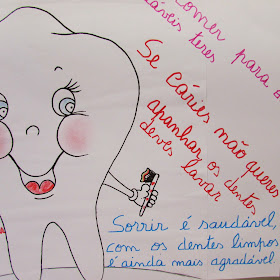 comer para o
dáveis teres
Se cáries não queres
apanhar, os dentes
deves lavar
Sorrir é saudável,
com os dentes limpos
é ainda mais agradável